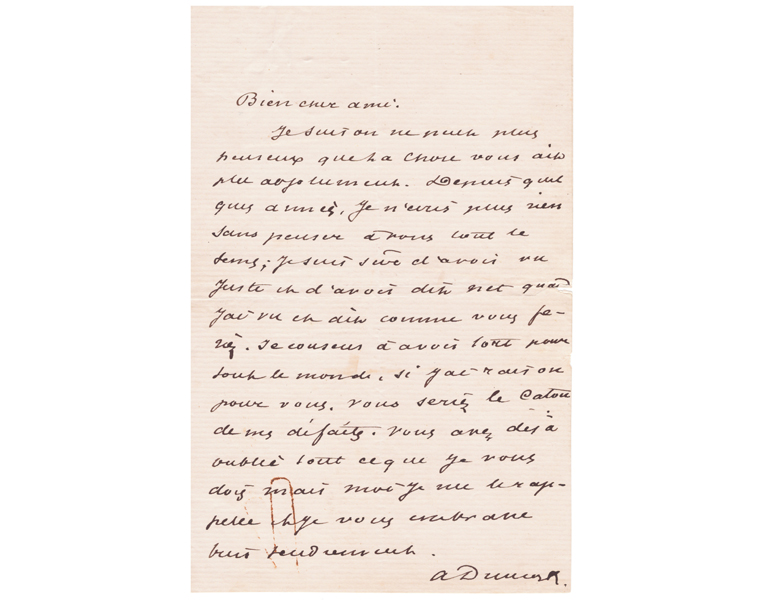 Bien cher ami.
Je suis on ne peut plus
heureux que la chose vous ait
plu absolument. Depuis quel
ques années, je n'écris plus rien
sans penser à vous tout le
tems; je suis sûre d'avoir vu
juste et d'avoir dit net quad
j'ai vu et dit comme vous fe-
riez. Je consens d'avoir tort pour
tout le monde, si j'ai raison
pour vous. Vous seriez le Caton
de mes défaites. Vous avez déjà
oublié tout ce que je vous
dois mais moi je me le rap-
pelle et je vous embrasse
bien tendrement.
A Dumas f.